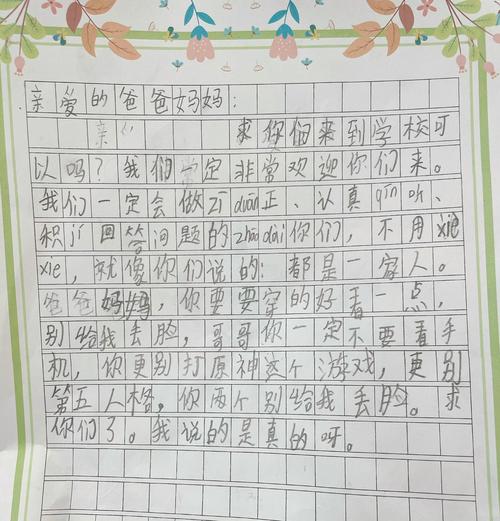 亲爱的爸爸妈妈：
求你们来到学校可
以吗？我们一定非常欢迎你们来。
我们一定会做zī duān正、认真qīn听、
积jí回答问题的zhāo dài你们，不用xiè
xie，就像你们说的：都是一家人。
爸爸妈妈，你要要穿的好看一点，
别给我丢脸，哥哥你一定不要看手
机，你更别打原神这个游戏，更别
第五人格，你两个别给我丢脸。求
你们了。我说的是真的呀。